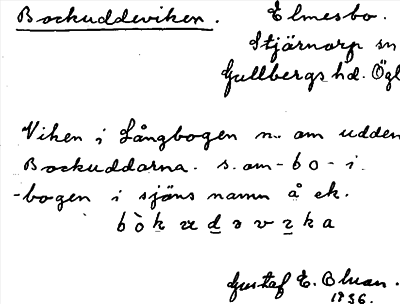 Bockuddeviken. Elmesbo.
Stjärnorp sn
Gullbergs hd. Ögl
Viken i Långbogen n. om udden
Bockuddarna. s.om -bo- i
-bogen i sjöns namn å ek.
Gustaf E. Olsson.
1936.